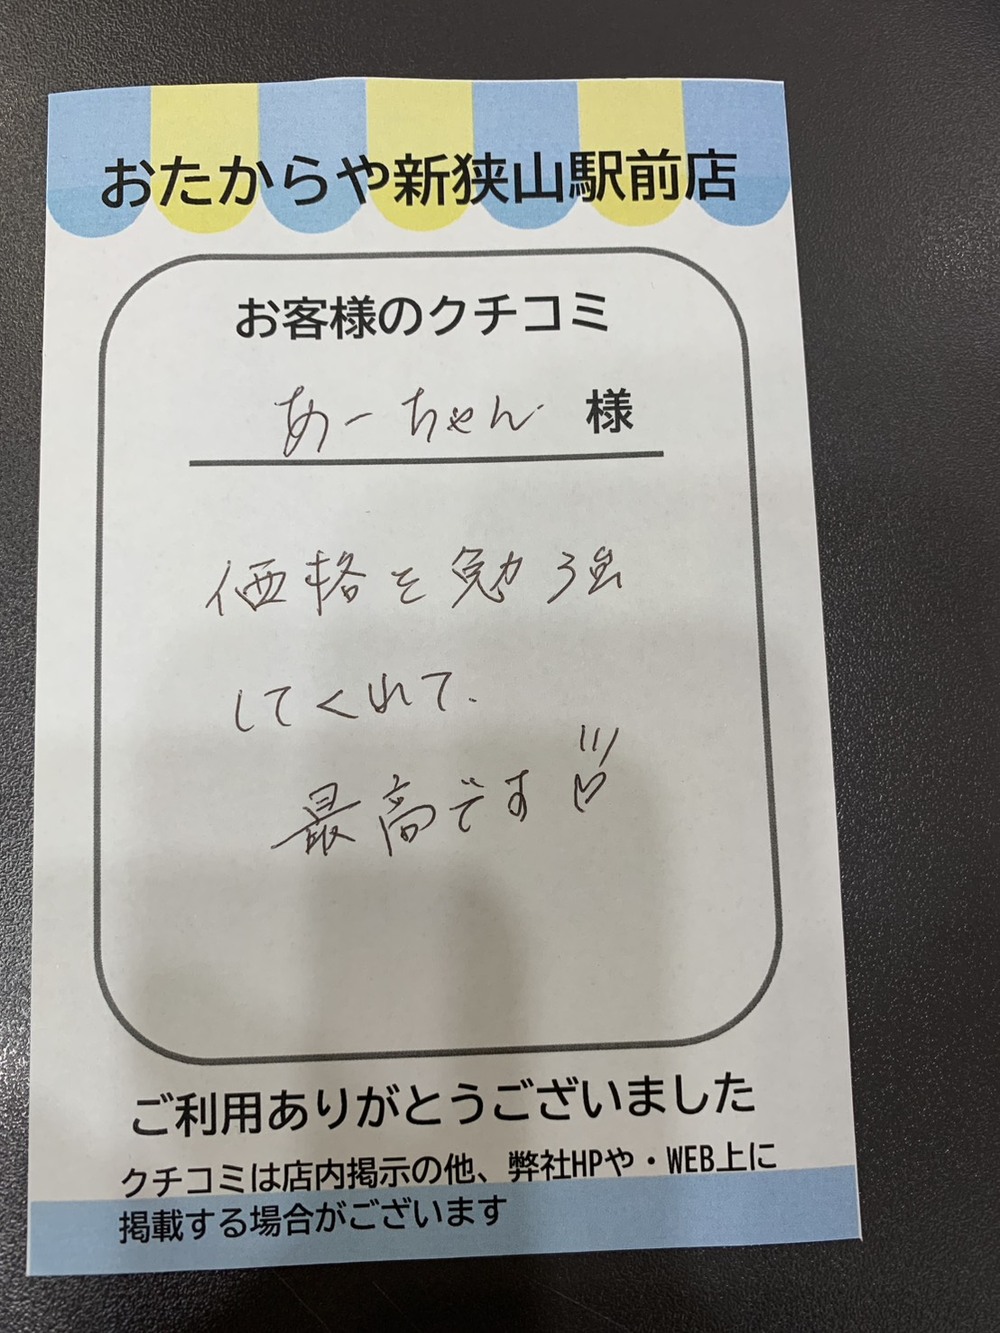 おたからや新狭山駅前店
お客様のクチコミ
あーちゃん 様
価格を勉強
してくれて、
最高です!!!♡
ご利用ありがとうございました
クチコミは店内掲示の他、弊社HPや・WEB上に
掲載する場合がございます